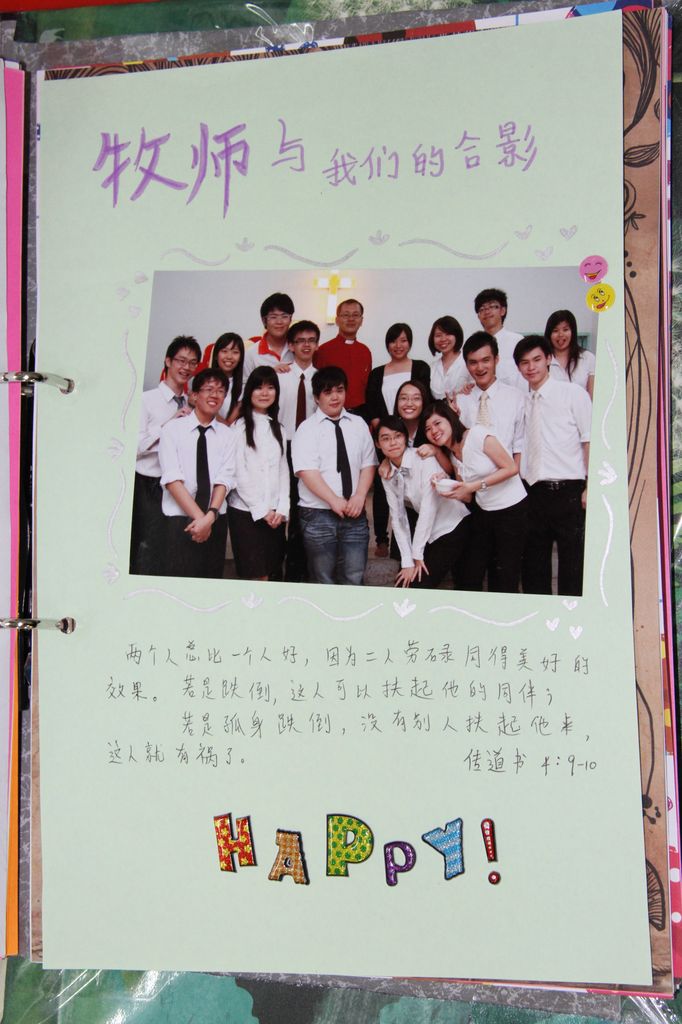 牧师与我们的合影
两个人总比一个人好，因为二人劳碌同得美好的
效果。若是跌倒，这人可以扶起他的同伴；
若是孤身跌倒，没有别人扶起他来，
这人就有祸了。
传道书 4:9-10
HAPPY!